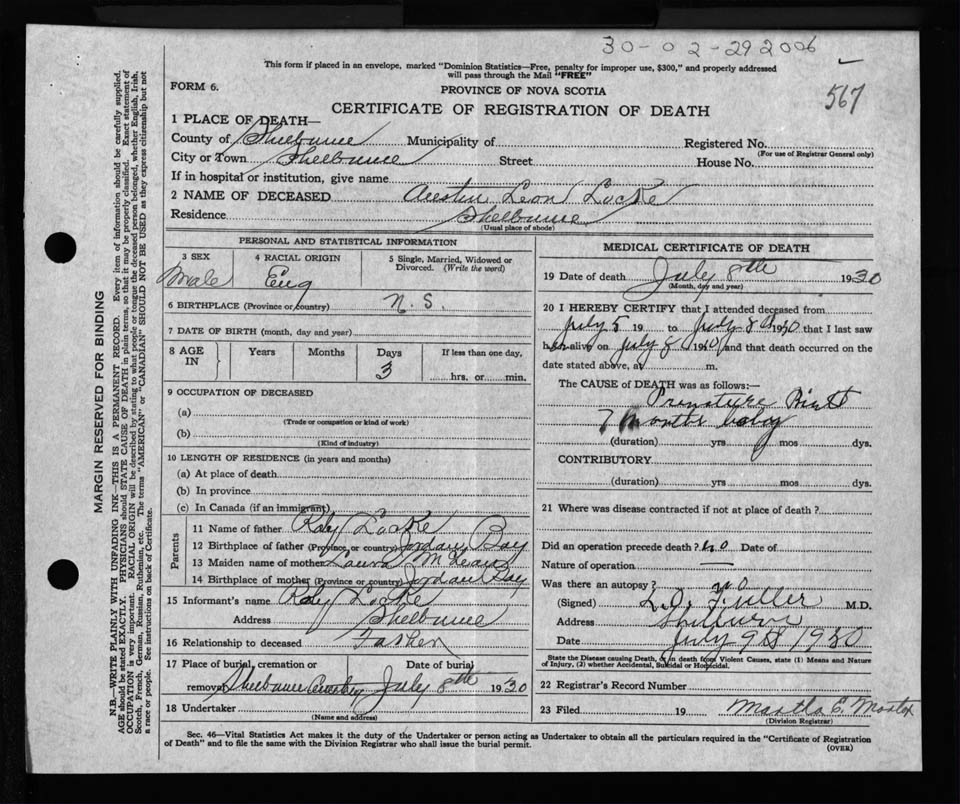 30-02-292006
567
This form if placed in an envelope, marked "Dominion Statistics—Free, penalty for improper use, $300," and properly addressed
will pass through the Mail "FREE"
FORM 6.
PROVINCE OF NOVA SCOTIA
CERTIFICATE OF REGISTRATION OF DEATH
1 PLACE OF DEATH—
County of Shelburne Municipality of Registered No.
(For use of Registrar General only)
City or Town Shelburne Street House No.
If in hospital or institution, give name
2 NAME OF DECEASED Leon Locke
Residence Shelburne
(Usual place of abode)
PERSONAL AND STATISTICAL INFORMATION
3 SEX 4 RACIAL ORIGIN 5 Single, Married, Widowed or Divorced. (Write the word)
Male Eng
6 BIRTHPLACE (Province or country) N. S.
7 DATE OF BIRTH (month, day and year)
8 AGE IN Years Months Days If less than one day,
3 hrs. or min.
9 OCCUPATION OF DECEASED
(a)
(Trade or occupation or kind of work)
(b)
(Kind of industry)
10 LENGTH OF RESIDENCE (in years and months)
(a) At place of death
(b) In province
(c) In Canada (if an immigrant)
Parents
11 Name of father Roy Locke
12 Birthplace of father (Province or country) Jordan Bay
13 Maiden name of mother Laura
14 Birthplace of mother (Province or country) Jordan Bay
15 Informant's name Roy Locke
Address Shelburne
16 Relationship to deceased Father
17 Place of burial, cremation or Date of burial
removal Shelburne July 8th 1930
18 Undertaker
(Name and address)
MEDICAL CERTIFICATE OF DEATH
19 Date of death July 8th 1930
(Month, day and year)
20 I HEREBY CERTIFY that I attended deceased from
July 5 19 to July 8 1930 that I last saw
alive on July 8 19 and that death occurred on the
date stated above, at m.
The CAUSE of DEATH was as follows:—
Premature Birth
7 months baby
(duration) yrs mos dys.
CONTRIBUTORY
(duration) yrs. mos. dys.
21 Where was disease contracted if not at place of death?
Did an operation precede death? no Date of
Nature of operation —
Was there an autopsy? no
(Signed) L.O. Fuller M.D.
Address
Date July 9th 1930
State the Disease causing Death, or in death from Violent Causes, state (1) Means and Nature
of Injury, (2) whether Accidental, Suicidal or Homicidal.
22 Registrar's Record Number
23 Filed 19 Martha E.
(Division Registrar)
Sec. 46—Vital Statistics Act makes it the duty of the Undertaker or person acting as Undertaker to obtain all the particulars required in the "Certificate of Registration
of Death" and to file the same with the Division Registrar who shall issue the burial permit.
(OVER)
MARGIN RESERVED FOR BINDING
N.B.—WRITE PLAINLY WITH UNFADING INK—THIS IS A PERMANENT RECORD. Every item of information should be carefully supplied.
AGE should be stated EXACTLY. PHYSICIANS should STATE CAUSE OF DEATH in plain terms, so that it may be properly classified. Exact statement of
OCCUPATION is very important. RACIAL ORIGIN will be described by stating to what people or tongue the deceased person belonged, whether English, Irish,
Scotch, French, German, Russian, Ruthenian, etc. The terms "AMERICAN" or "CANADIAN" SHOULD NOT BE USED as they express citizenship but not
a race or people. See instructions on back of Certificate.